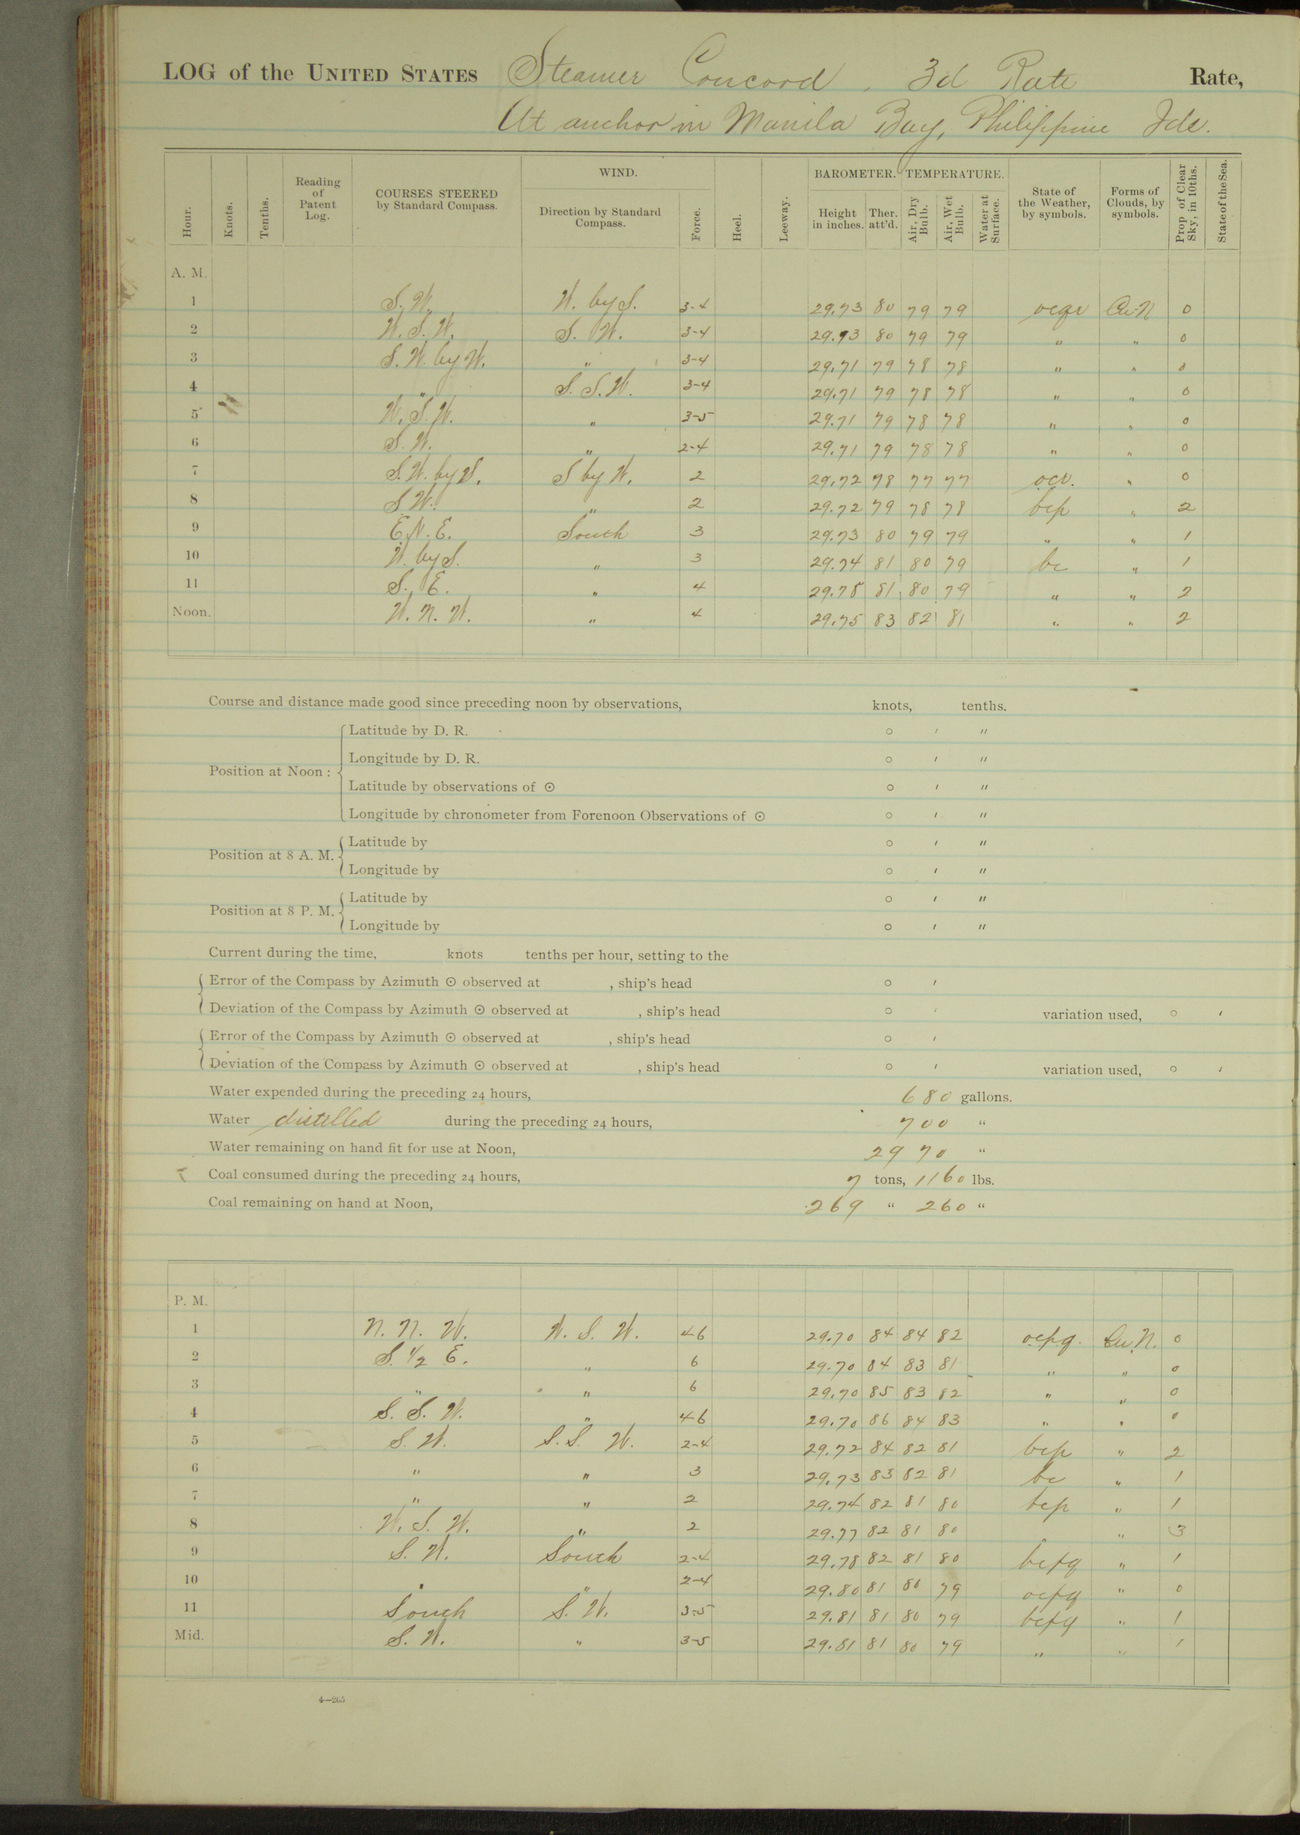 LOG of the UNITED STATES Steamer Concord, 3d Rate Rate,
At anchor in Manila Bay, Philippine Ids.
Hour. Knots. Tenths. Reading of Patent Log. COURSES STEERED by Standard Compass. WIND. Direction by Standard Compass. Force. Heel. Leeway. BAROMETER. Height in inches. Ther. att'd. TEMPERATURE. Air, Dry Bulb. Air, Wet Bulb. Water at Surface. State of the Weather, by symbols. Forms of Clouds, by symbols. Prop. of Clear Sky, in 10ths. State of the Sea.
A. M.
1 S. W. W. by S. 3-4 29.73 80 79 79 ocqr Cu-N 0
2 W. S. W. S. W. 3-4 29.73 80 79 79 " " 0
3 S. W. by W. " 3-4 29.71 79 78 78 " " 0
4 " S. S. W. 3-4 29.71 79 78 78 " " 0
5 W. S. W. " 3-5 29.71 79 78 78 " " 0
6 S. W. " 2-4 29.71 79 78 78 " " 0
7 S. W. by S. S by W. 2 29.72 78 77 77 ocr. " 0
8 S W. " 2 29.72 79 78 78 bcp " 2
9 E. N. E. South 3 29.73 80 79 79 " " 1
10 W. by S. " 3 29.74 81 80 79 bc " 1
11 S. E. " 4 29.75 81 80 79 " " 2
Noon. W. N. W. " 4 29.75 83 82 81 " " 2
Course and distance made good since preceding noon by observations, knots, tenths.
Latitude by D. R. ° ′ ″
Longitude by D. R. ° ′ ″
Position at Noon:
Latitude by observations of ☉ ° ′ ″
Longitude by chronometer from Forenoon Observations of ☉ ° ′ ″
Position at 8 A. M. Latitude by ° ′ ″
Longitude by ° ′ ″
Position at 8 P. M. Latitude by ° ′ ″
Longitude by ° ′ ″
Current during the time, knots tenths per hour, setting to the
Error of the Compass by Azimuth ☉ observed at , ship's head ° ′
Deviation of the Compass by Azimuth ☉ observed at , ship's head ° ′ variation used, ° ′
Error of the Compass by Azimuth ☉ observed at , ship's head ° ′
Deviation of the Compass by Azimuth ☉ observed at , ship's head ° ′ variation used, ° ′
Water expended during the preceding 24 hours, 680 gallons.
Water distilled during the preceding 24 hours, 700 "
Water remaining on hand fit for use at Noon, 2970 "
Coal consumed during the preceding 24 hours, 7 tons, 1160 lbs.
Coal remaining on hand at Noon, 269 " 260 "
P. M.
1 N. N. W. W. S. W. 4-6 29.70 84 84 82 ocpq. Cu.N. 0
2 S. 1/2 E. " 6 29.70 84 83 81 " " 0
3 " " 6 29.70 85 83 82 " " 0
4 S. S. W. " 4-6 29.70 86 84 83 " " 0
5 S. W. S. S. W. 2-4 29.72 84 82 81 bcp " 2
6 " " 3 29.73 83 82 81 bc " 1
7 " " 2 29.74 82 81 80 bcp " 1
8 W. S. W. " 2 29.77 82 81 80 " 3
9 S. W. South 2-4 29.78 82 81 80 bcpq " 1
10 " " 2-4 29.80 81 80 79 ocpq " 0
11 South S. W. 3-5 29.81 81 80 79 bcpq " 1
Mid. S. W. " 3-5 29.81 81 80 79 " " 1
4—265